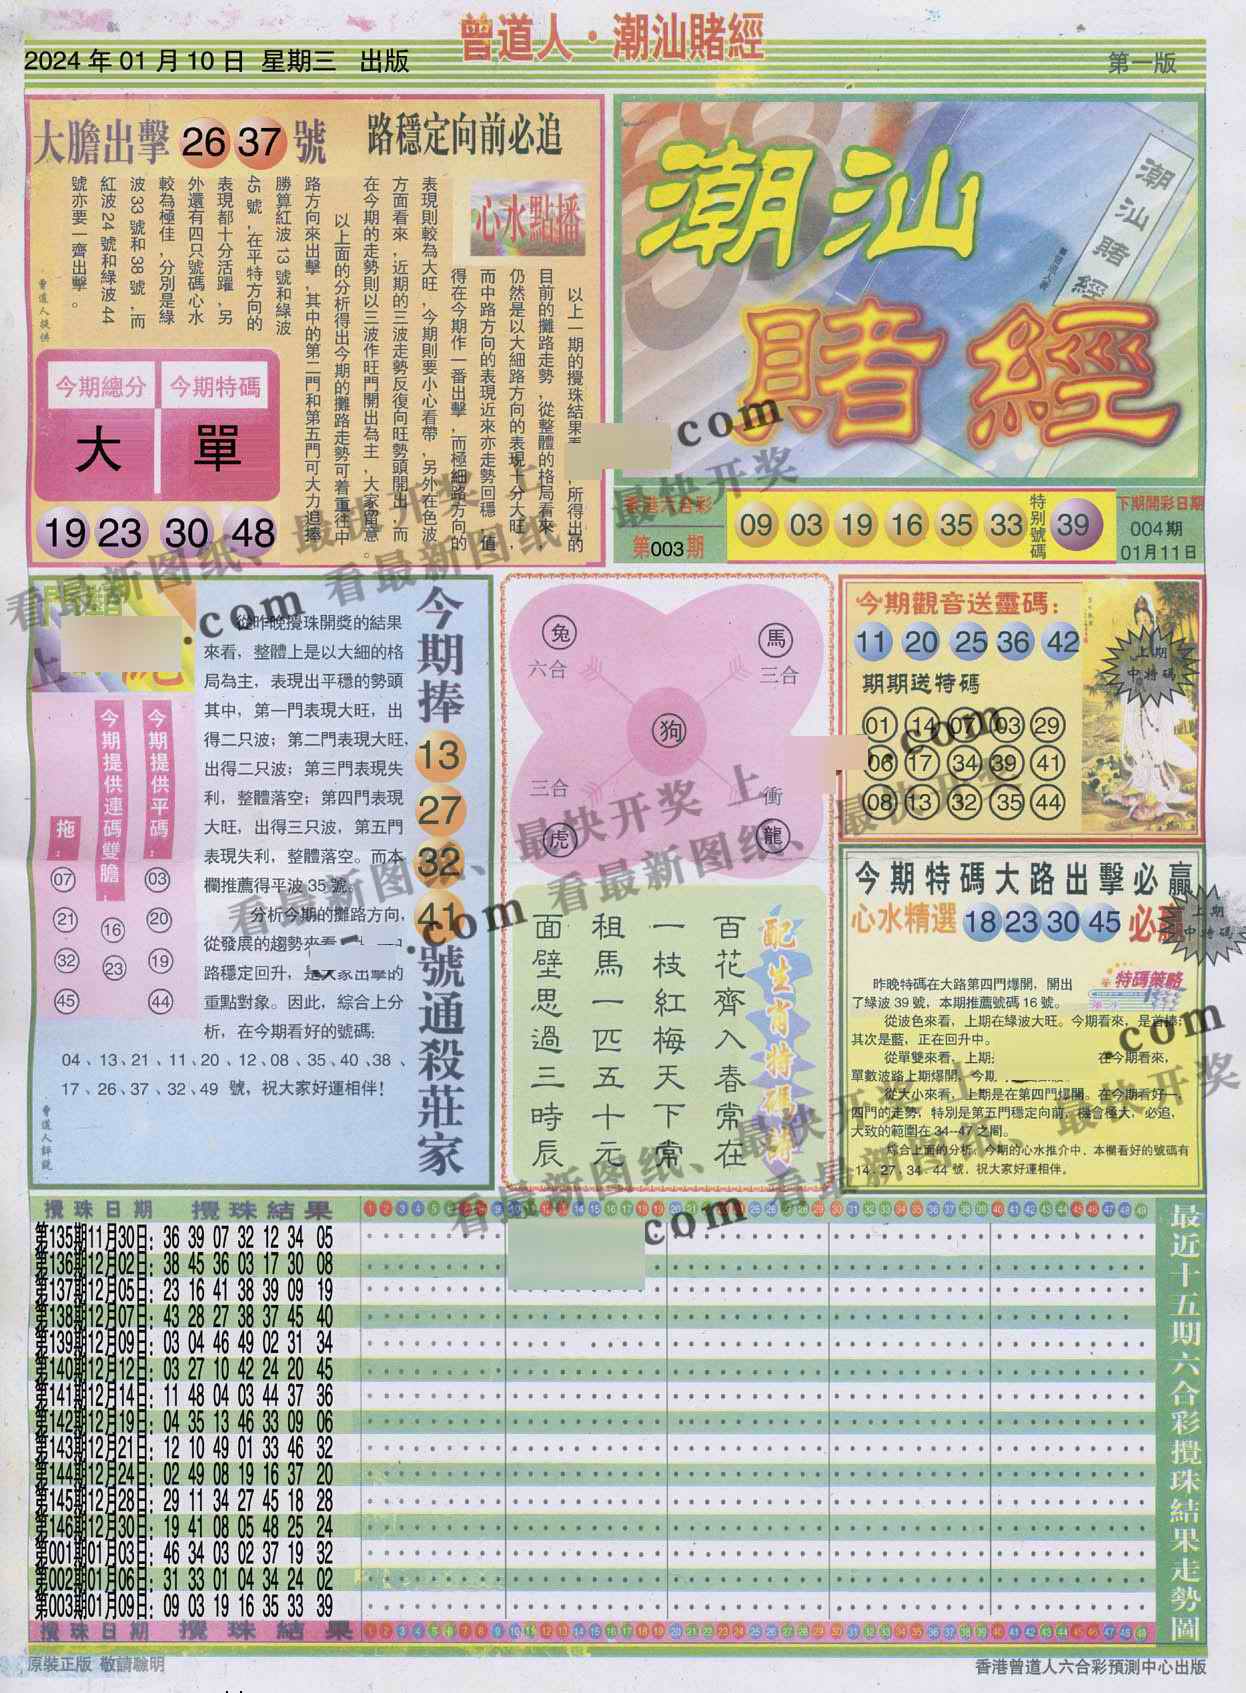 2024 年 01 月 10 日 星期三 出版
曾道人·潮汕賭經
第一版
大膽出擊 26 37 號
路穩定向前必追
心水點播
以上一期的攪珠結果
所得出的
目前的攤路走勢,從整體的格局看來
仍然是以大細路方向的表現十分大旺,
而中路方向的表現近來亦走勢回穩,值
得在今期作一番出擊,而極細路方向的
表現則較為大旺,今期則要小心看帶,另外在色波
方面看來,近期的三波走勢反復向旺勢頭開出,而
在今期的走勢則以三波作旺門開出為主,大家留意。
以上面的分析得出今期的攤路走勢可着重往中
路方向來出擊,其中的第二門和第五門可大力追捧
勝算紅波 13 號和綠波
45 號,在平特方向的
表現都十分活躍,另
外還有四只號碼心水
較為極佳,分別是綠
波 33 號和 38 號,而
紅波 24 號和綠波 44
號亦要一齊出擊。
曾道人提供
今期總分 今期特碼
大 單
19 23 30 48
潮汕
賭經
潮汕賭經
香港六合彩
第003期
09 03 19 16 35 33
特别號碼
39
下期開彩日期
004期
01月11日
從昨晚攪珠開獎的結果
來看，整體上是以大細的格
局為主，表現出平穩的勢頭
其中，第一門表現大旺，出
得二只波；第二門表現大旺，
出得二只波；第三門表現失
利，整體落空；第四門表現
大旺，出得三只波，第五門
表現失利，整體落空。而本
欄推薦得平波 35 號。
分析今期的攤路方向，
從發展的趨勢來看
路穩定回升，是大家出擊的
重點對象。因此，綜合上分
析，在今期看好的號碼:
04、13、21、11、20、12、08、35、40、38、
17、26、37、32、49 號，祝大家好運相伴!
曾道人評說
今期提供平碼:
03
20
19
44
今期提供連碼雙膽:
16
23
拖:
07
21
32
45
今期捧
13
27
32
41
號通殺莊家
兔
六合
馬
三合
狗
三合
虎
衝
龍
配生肖特碼詩
百花齊入春常在
一枝紅梅天下常
租馬一匹五十元
面壁思過三時辰
今期觀音送靈碼:
11 20 25 36 42
期期送特碼
01 14 07 03 29
06 17 34 39 41
08 13 32 35 44
上期
中特碼
今期特碼大路出擊必贏
心水精選 18 23 30 45 必贏
上期
中特碼
特碼策略
昨晚特碼在大路第四門爆開，開出
了綠波 39 號，本期推薦號碼 16 號。
從波色來看，上期在綠波大旺。今期看來，是首捧;
其次是藍，正在回升中。
從單雙來看，上期:
在今期看來，
單數波路上期爆開。今期
從大小來看，上期是在第四門爆開。在今期看好一、
四門的走勢，特別是第五門穩定向前，機會極大，必追，
大致的範圍在 34--47 之間。
綜合上面的分析，今期的心水推介中，本欄看好的號碼有
14、27、34、44 號，祝大家好運相伴。
攪珠日期 攪珠結果 1 2 3 4 5 6 7 8 9
第135期11月30日: 36 39 07 32 12 34 05
第136期12月02日: 38 45 36 03 17 30 08
第137期12月05日: 23 16 41 38 39 09 19
第138期12月07日: 43 28 27 38 37 45 40
第139期12月09日: 03 04 46 49 02 31 34
第140期12月12日: 03 27 10 42 24 20 45
第141期12月14日: 11 48 04 03 44 37 36
第142期12月19日: 04 35 13 46 33 09 06
第143期12月21日: 12 10 49 01 33 46 32
第144期12月24日: 02 49 08 19 16 37 20
第145期12月28日: 29 11 34 27 45 18 28
第146期12月30日: 19 41 08 05 48 25 24
第001期01月03日: 46 34 03 02 37 19 32
第002期01月06日: 31 33 01 04 34 24 02
第003期01月09日: 09 03 19 16 35 33 39
攪珠日期 攪珠結果
最近十五期六合彩攪珠結果走勢圖
原裝正版 敬請聰明
香港曾道人六合彩預測中心出版
看最新图纸、最快开奖 上
.com
看最新图纸、最快开奖 上
.com
看最新图纸、最快开奖 上
.com